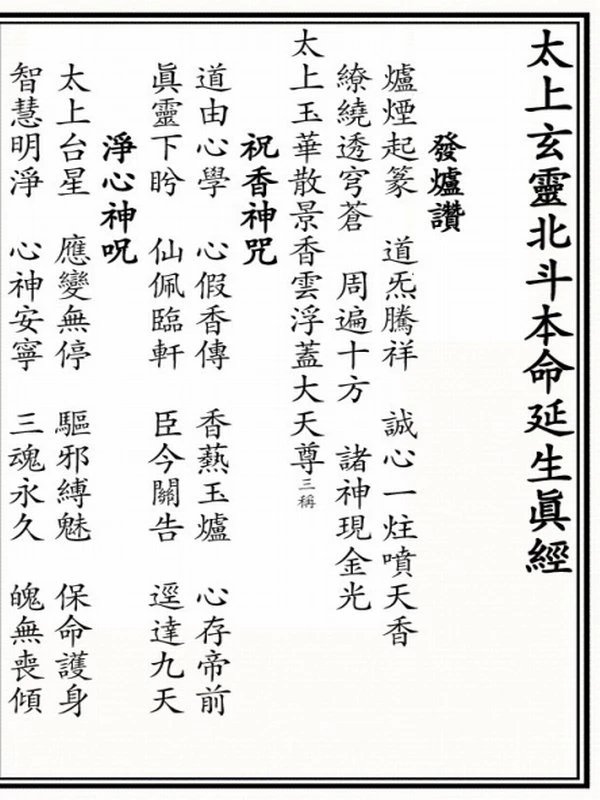 太上玄靈北斗本命延生眞經
發爐讚
爐煙起篆　道炁騰祥　誠心一炷噴天香
繚繞透穹蒼　周遍十方　諸神現金光
太上玉華散景香雲浮蓋大天尊三稱
祝香神咒
道由心學　心假香傳　香爇玉爐　心存帝前
眞靈下盻　仙佩臨軒　臣今關告　逕達九天
淨心神呪
太上台星　應變無停　驅邪縛魅　保命護身
智慧明淨　心神安寧　三魂永久　魄無喪傾